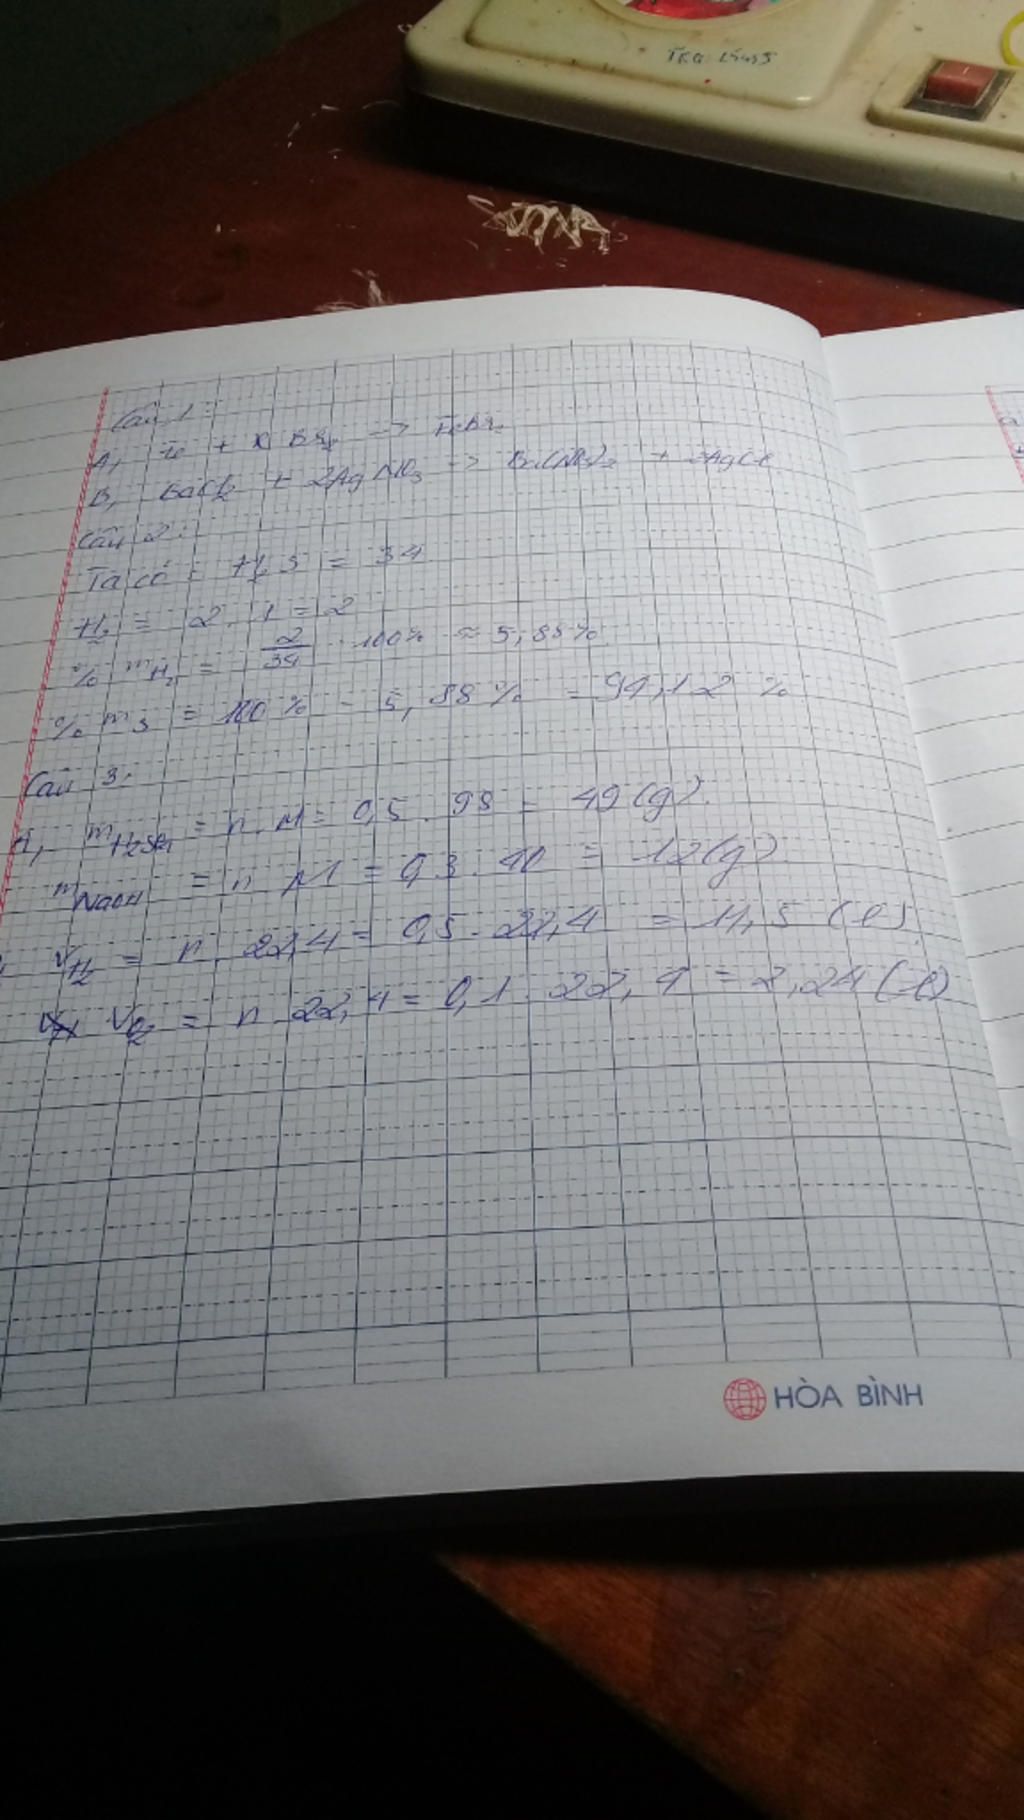 Câu 1:
A, Fe + Br₂ -> FeBr₂
B, BaCl₂ + 2AgNO₃ -> Ba(NO₃)₂ + 2AgCl
Câu 2:
Ta có: H₂S = 34
H₂ = 2.1 = 2
% mH₂ = 2/34 . 100% ≈ 5,88%
% mS = 100% - 5,88% = 94,12%
Câu 3:
A, mH₂SO₄ = n.M = 0,5.98 = 49 (g).
mNaOH = n.M = 0,3.40 = 12 (g)
VH₂ = n.22,4 = 0,5.22,4 = 11,5 (l)
VO₂ = n.22,4 = 0,1.22,4 = 2,24 (l)
HÒA BÌNH